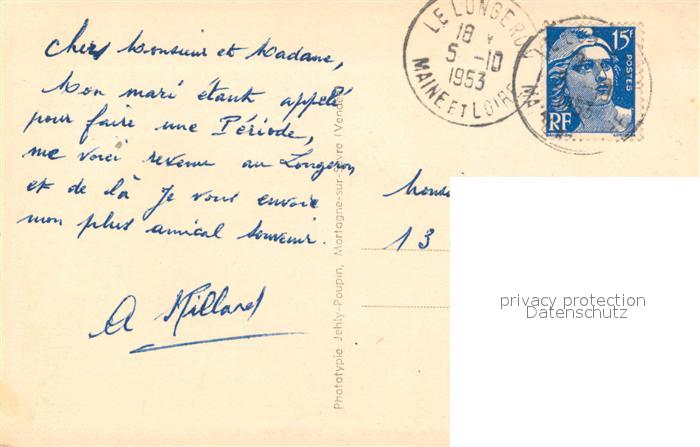 Chers Monsieur et Madame,
Mon mari étant appelé
pour faire une Période,
me voici revenue au Longeron
et de là Je vous envoie
mon plus amical souvenir.
A Millard
Phototypie Jehly-Poupin, Mortagne-sur-Sèvre (Vendée)
LE LONGERON
18
5 -10
1953
MAINE ET LOIRE
15F
POSTES
RF
13
privacy protection
Datenschutz